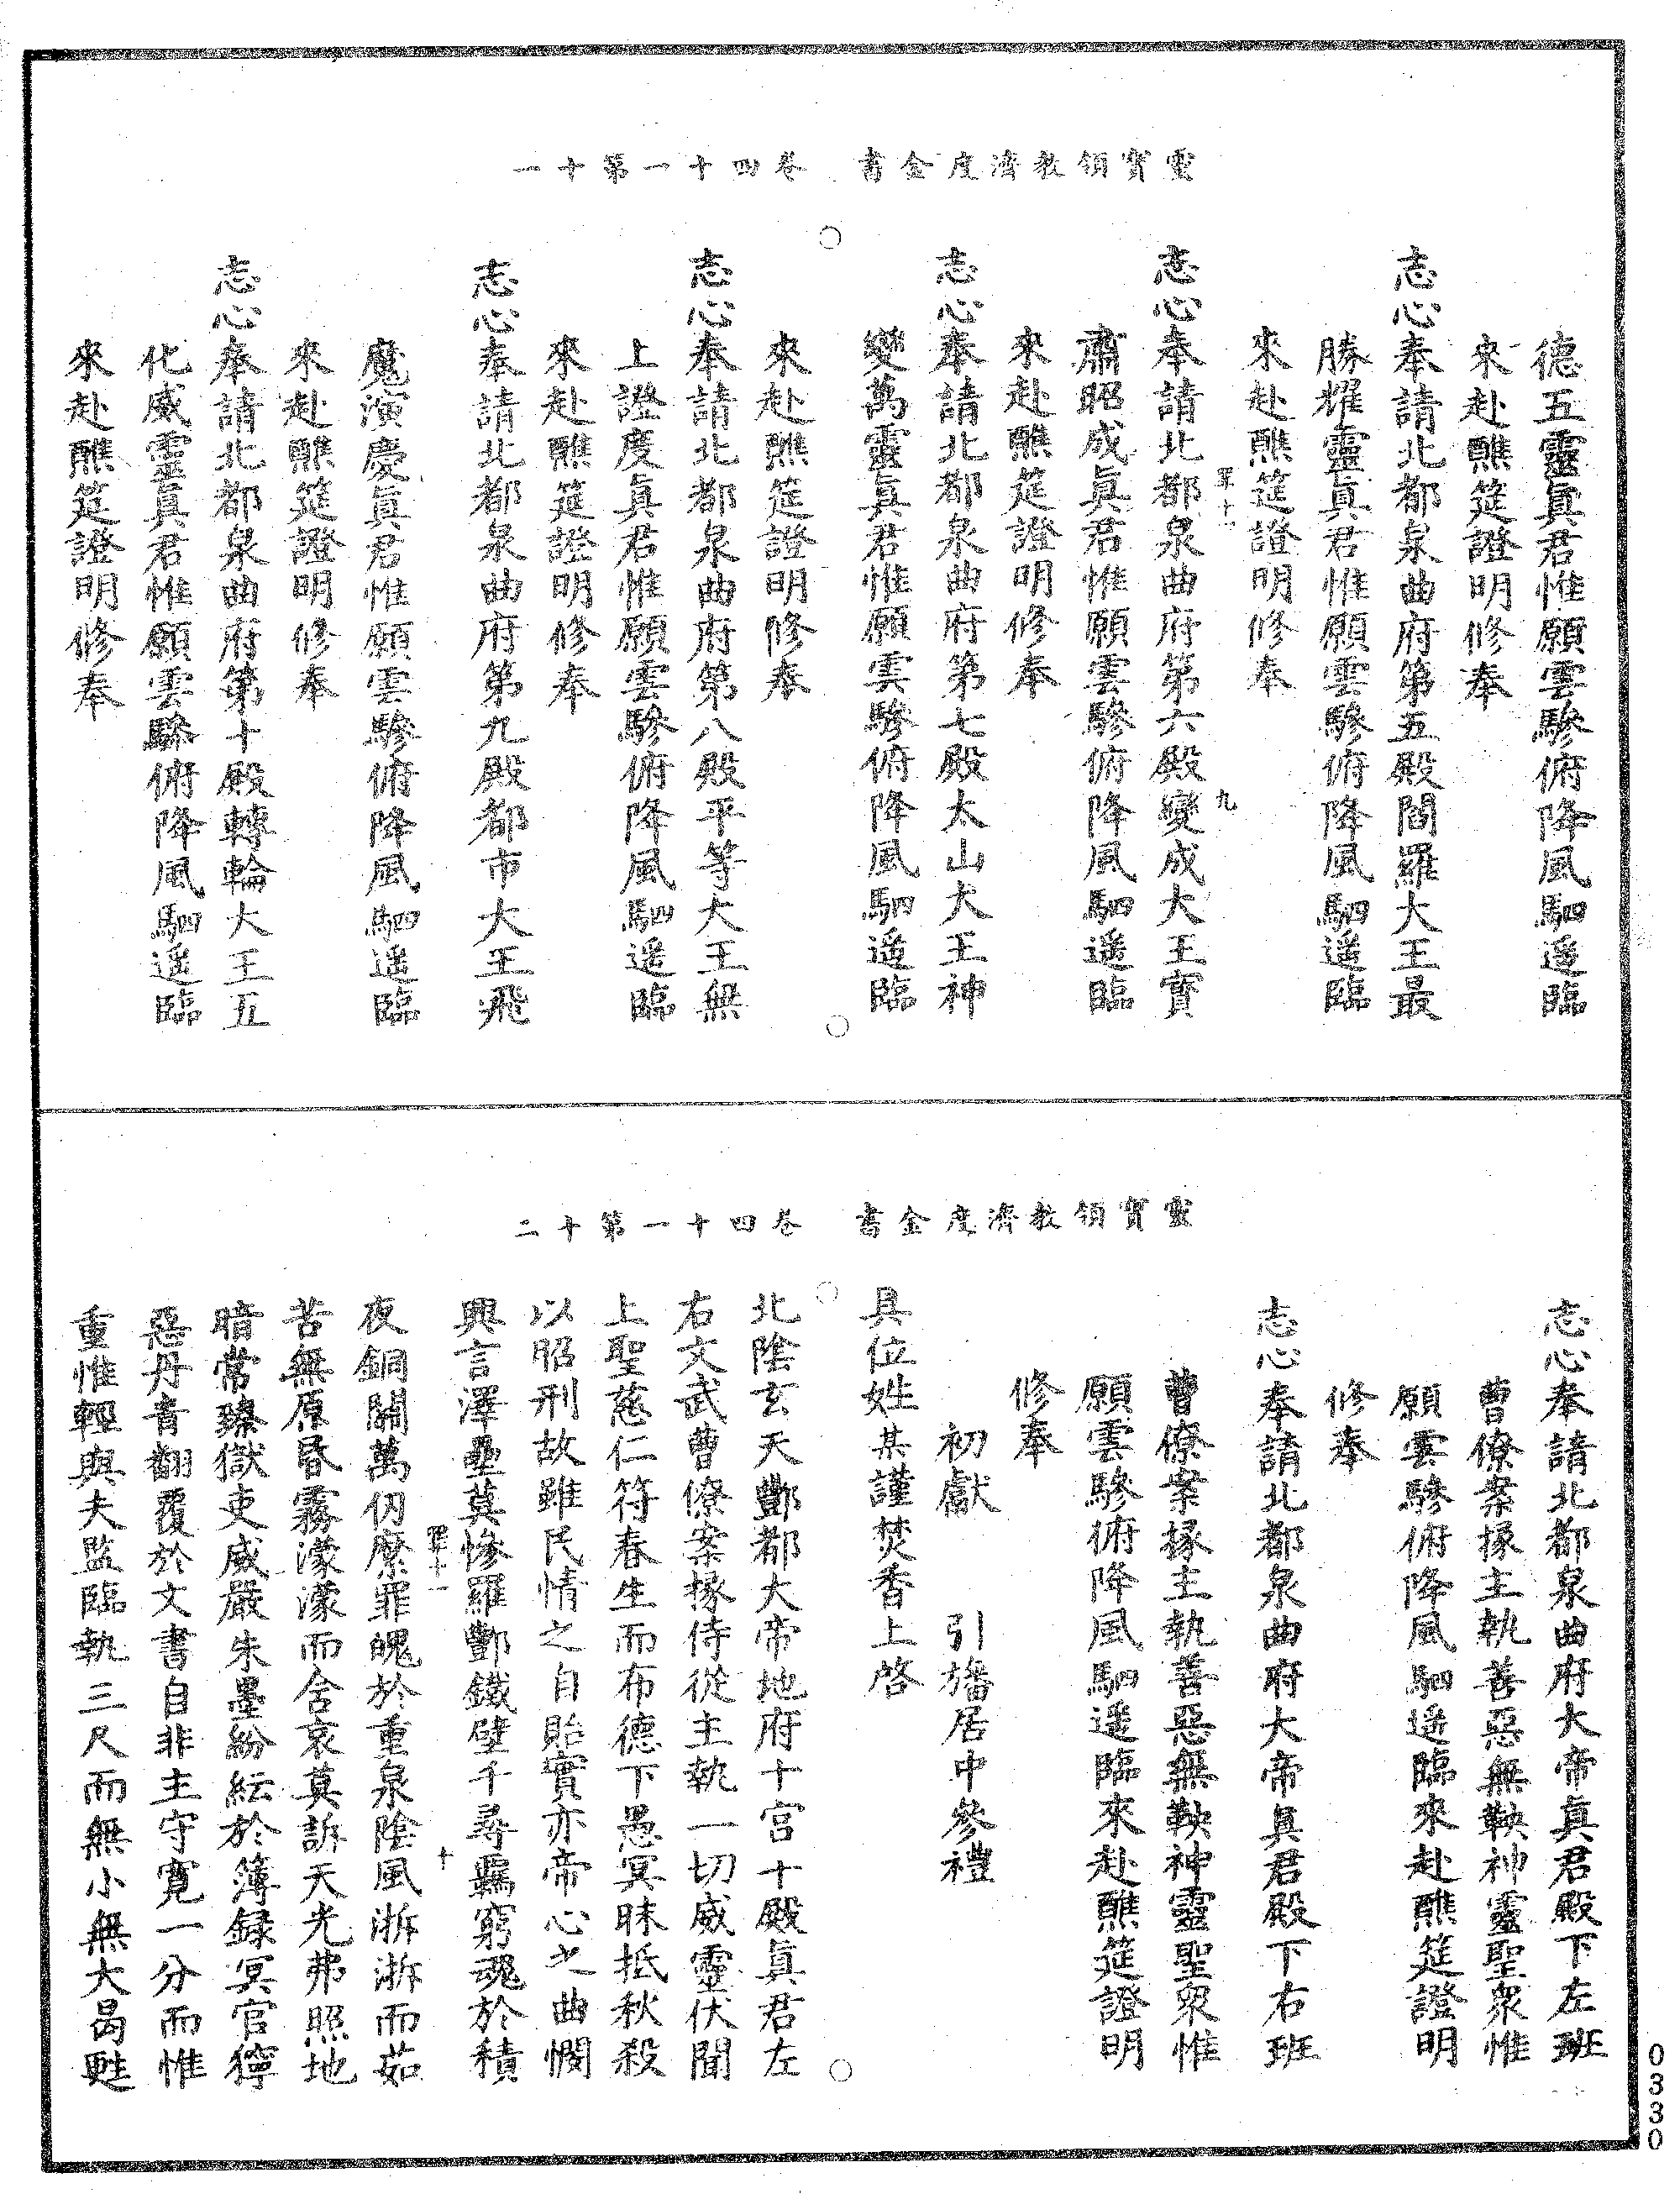 靈寶領教濟度金書　卷四十一第十一
德五靈眞君惟願雲驂俯降風馹遥臨
來赴醮筵證明修奉
志心奉請北都泉曲府第五殿閻羅大王最
勝耀靈眞君惟願雲驂俯降風馹遥臨
來赴醮筵證明修奉
罪十一　九
志心奉請北都泉曲府第六殿變成大王寳
肅昭成眞君惟願雲驂俯降風馹遥臨
來赴醮筵證明修奉
志心奉請北都泉曲府第七殿太山大王神
變萬靈眞君惟願雲驂俯降風馹遥臨
來赴醮筵證明修奉
志心奉請北都泉曲府第八殿平等大王無
上證度眞君惟願雲驂俯降風馹遥臨
來赴醮筵證明修奉
志心奉請北都泉曲府第九殿都市大王飛
魔演慶眞君惟願雲驂俯降風馹遥臨
來赴醮筵證明修奉
志心奉請北都泉曲府第十殿轉輪大王五
化威靈眞君惟願雲驂俯降風馹遥臨
來赴醮筵證明修奉
靈寶領教濟度金書　卷四十一第十二
志心奉請北都泉曲府大帝眞君殿下左班
曹僚案掾主執善惡無鞅神靈聖衆惟
願雲驂俯降風馹遥臨來赴醮筵證明
修奉
志心奉請北都泉曲府大帝眞君殿下右班
曹僚案掾主執善惡無鞅神靈聖衆惟
願雲驂俯降風馹遥臨來赴醮筵證明
修奉
初獻　引旛居中參禮
具位姓某謹焚香上啓
北陰玄天酆都大帝地府十宫十殿眞君左
右文武曹僚案掾侍從主執一切威靈伏聞
上聖慈仁符春生而布德下愚冥昧抵秋殺
以昭刑故雖民情之自貽實亦帝心之曲憫
興言澤壘莫慘羅酆鐵壁千尋羈窮魂於積
罪十一　十
夜銅關萬仞縻罪魄於重泉陰風浙浙而茹
苦無原昏霧濛濛而含哀莫訴天光弗照地
暗常臻獄吏威嚴朱墨紛紜於簿録冥官獰
惡丹青翻覆於文書自非主守寛一分而惟
重惟輕與夫監臨執三尺而無小無大曷甦
0330